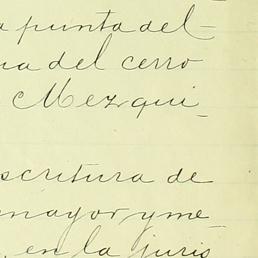 a punta del
na del cerro
Mezqui-
scritura de
mayor y me-
en la juris